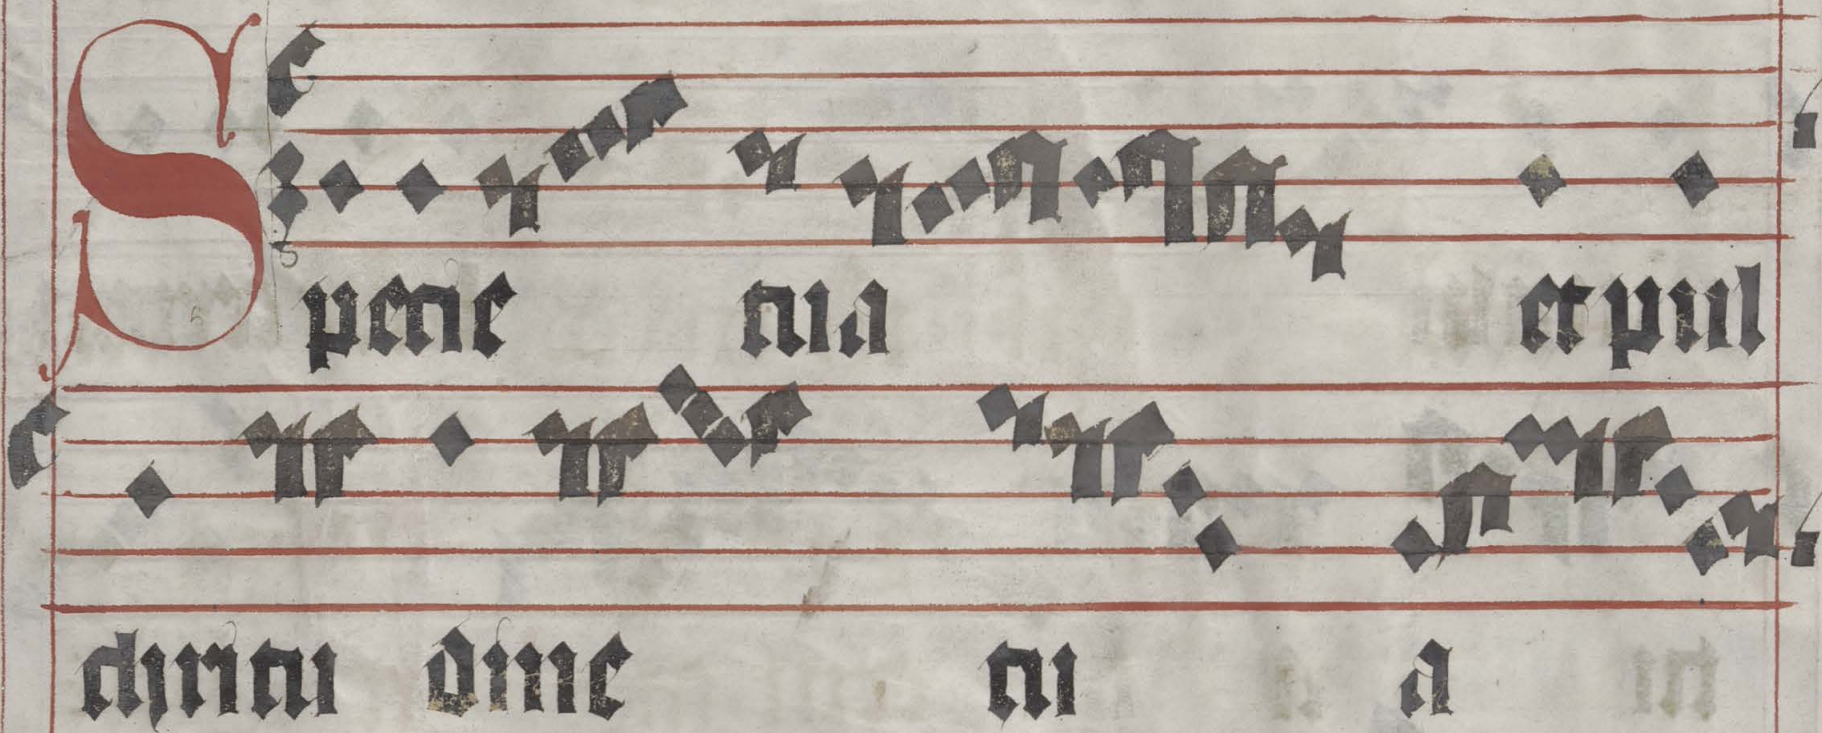 Specie tua et pul
chritu dine tu a